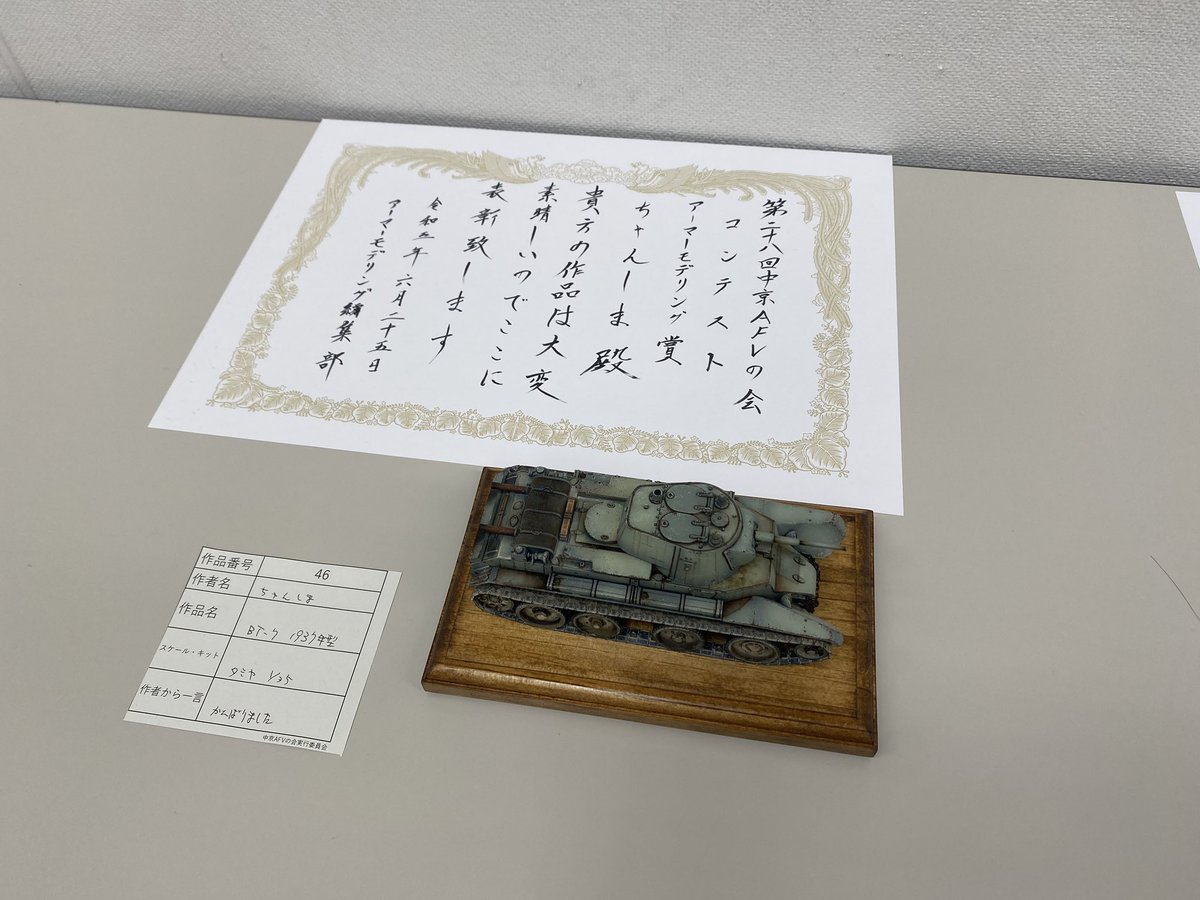 第二十八回中京AFVの会
コンテスト
アーマーモデリング賞
ちゃんしま 殿
貴方の作品は大変
素晴しいのでここに
表彰致します
令和五年 六月二十五日
アーマーモデリング編集部
作品番号 46
作者名 ちゃんしま
作品名 BT-7 1937年型
スケール・キット タミヤ 1/35
作者から一言 がんばりました
中京AFVの会実行委員会